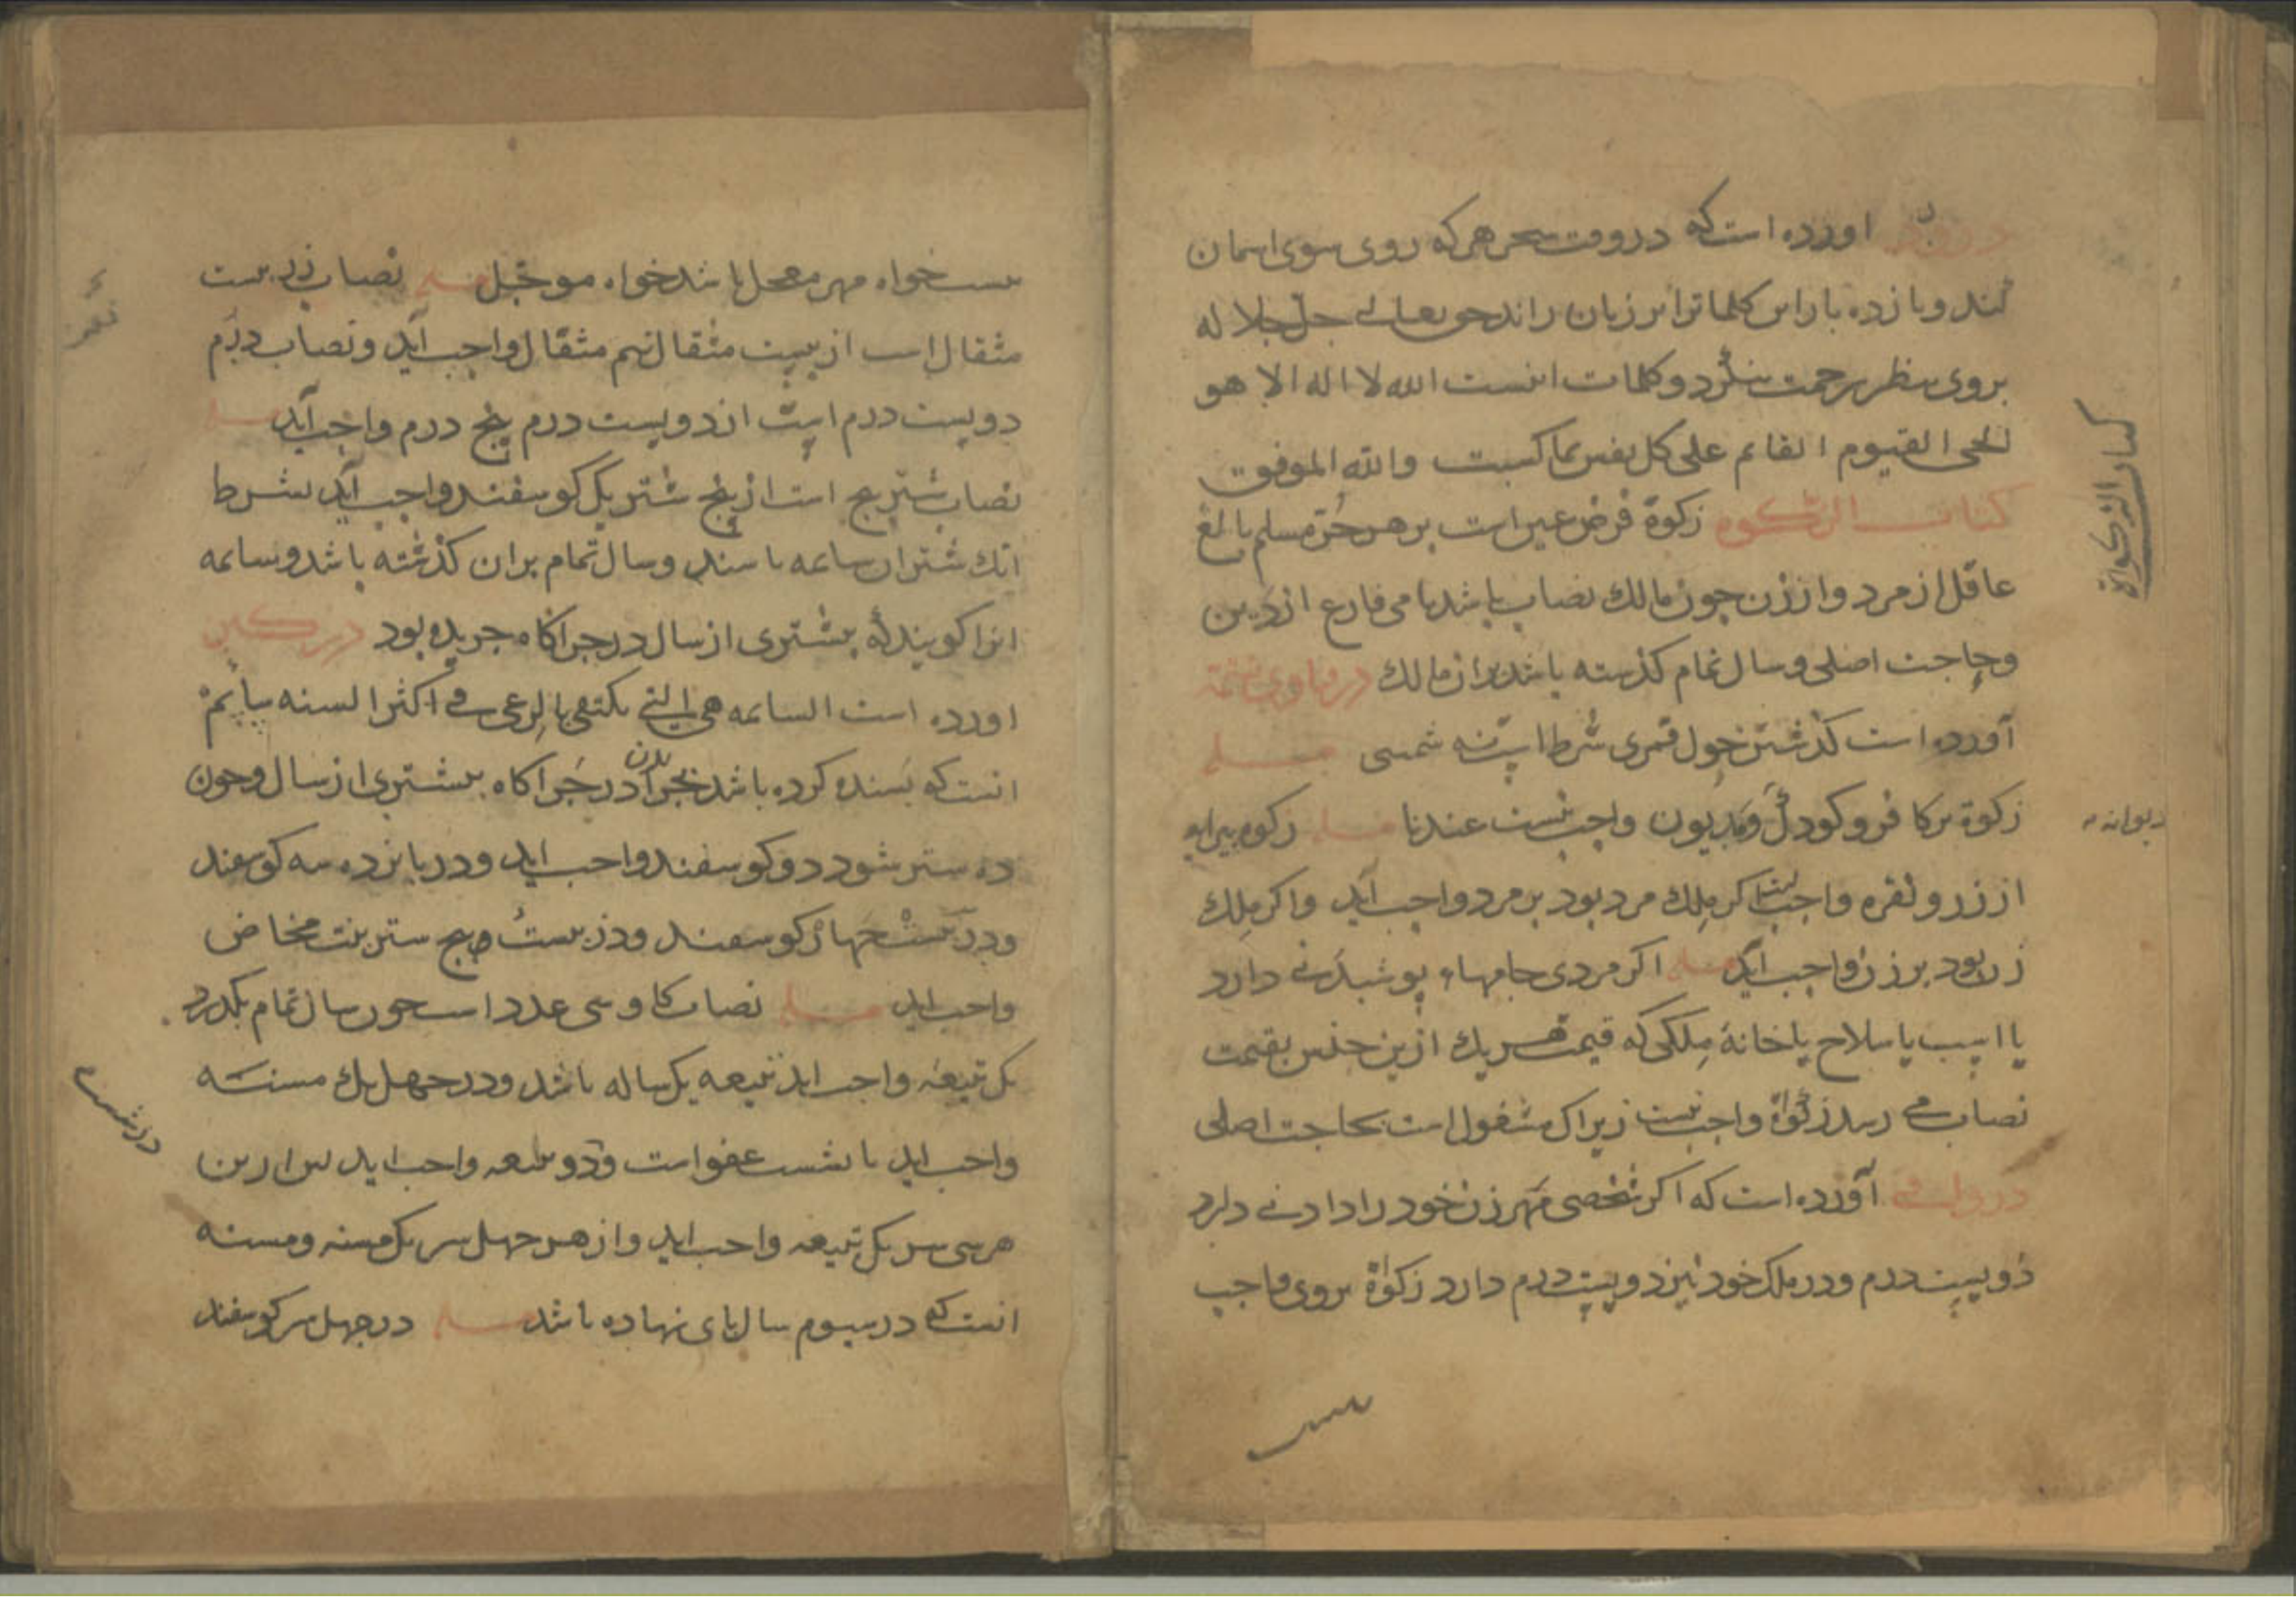 اورده است که در وقت سحر هر که روی سوی اسمان
کند و یازده بار این کلماترا بر زبان راند حق تعالی جل جلاله
بروی بنظر رحمت بنکرد و کلمات اینست الله لا اله الا هو
الحی القیوم القائم علی کل نفس بما کسبت والله الموفق
کتاب الزکوة زکوة فرض عین است بر هر حر مسلم بالغ
عاقل از مرد و از زن چون مالك نصاب باشد نامی فارغ از دین
و حاجت اصلی و سال تمام کذشته باشد بران مالك در فتاوی
آورده است کذشتن حول قمری شرط است نه شمسی مسله
زکوة بر کافر و کودك و مدیون واجب نیست عندنا مسله زکوة پیرایه
از زر و نقره واجب است اکر ملك مرد بود بر مرد واجب آید و اکر ملك
زن بود بر زن واجب آید مسله اکر مردی جامهاء پوشیدنی دارد
یا اسب یا سلاح یا خانهٔ ملکی که قیمت هر یك ازین جنس بقیمت
نصاب می رسد زکوٰة واجب نیست زیراك مشغول است بحاجت اصلی
در آورده است که اکر شخصی مهر زن خود را دادنی دارد
دویست درم و در ملک خود نیز دویست درم دارد زکوٰة بروی واجب
کتاب الزکواة
دیوانه
نیست خواه مهر معجل باشد خواه موجل مسله نصاب زر بیست
مثقال است از بیست مثقال نیم مثقال واجب آید و نصاب درم
دویست درم است از دویست درم پنج درم واجب آید مسله
نصاب شتر پنج است از پنج شتر یک کوسفند واجب آید بشرط
آنك شتران سایمه باشند و سال تمام بران کذشته باشد و سایمه
انرا کویند که بیشتری از سال در چراکاه چریده بود در
اورده است السایمه هی التی یکتفی بالرعی فی اکثر السنه سایمه
انست که بسنده کرده باشد بچرا در چراکاه بیشتری از سال و چون
ده شتر شود دو کوسفند واجب اید و در پانزده سه کوسفند
و در بیست چهار کوسفند و در بیست و پنج شتر بنت مخاض
واجب اید مسله نصاب کاو سی عدد است چون سال تمام بکذرد
یک تبیعه واجب اید تبیعه یک ساله باشد و در چهل یك مسنه
واجب اید تا شست عفو است و دو تبیعه واجب اید پس ازین
هر سی سر یک تبیعه واجب اید و از هر چهل سر یک مسنه و مسنه
انست که در سیوم سال پای نهاده باشد مسله در چهل سر کوسفند